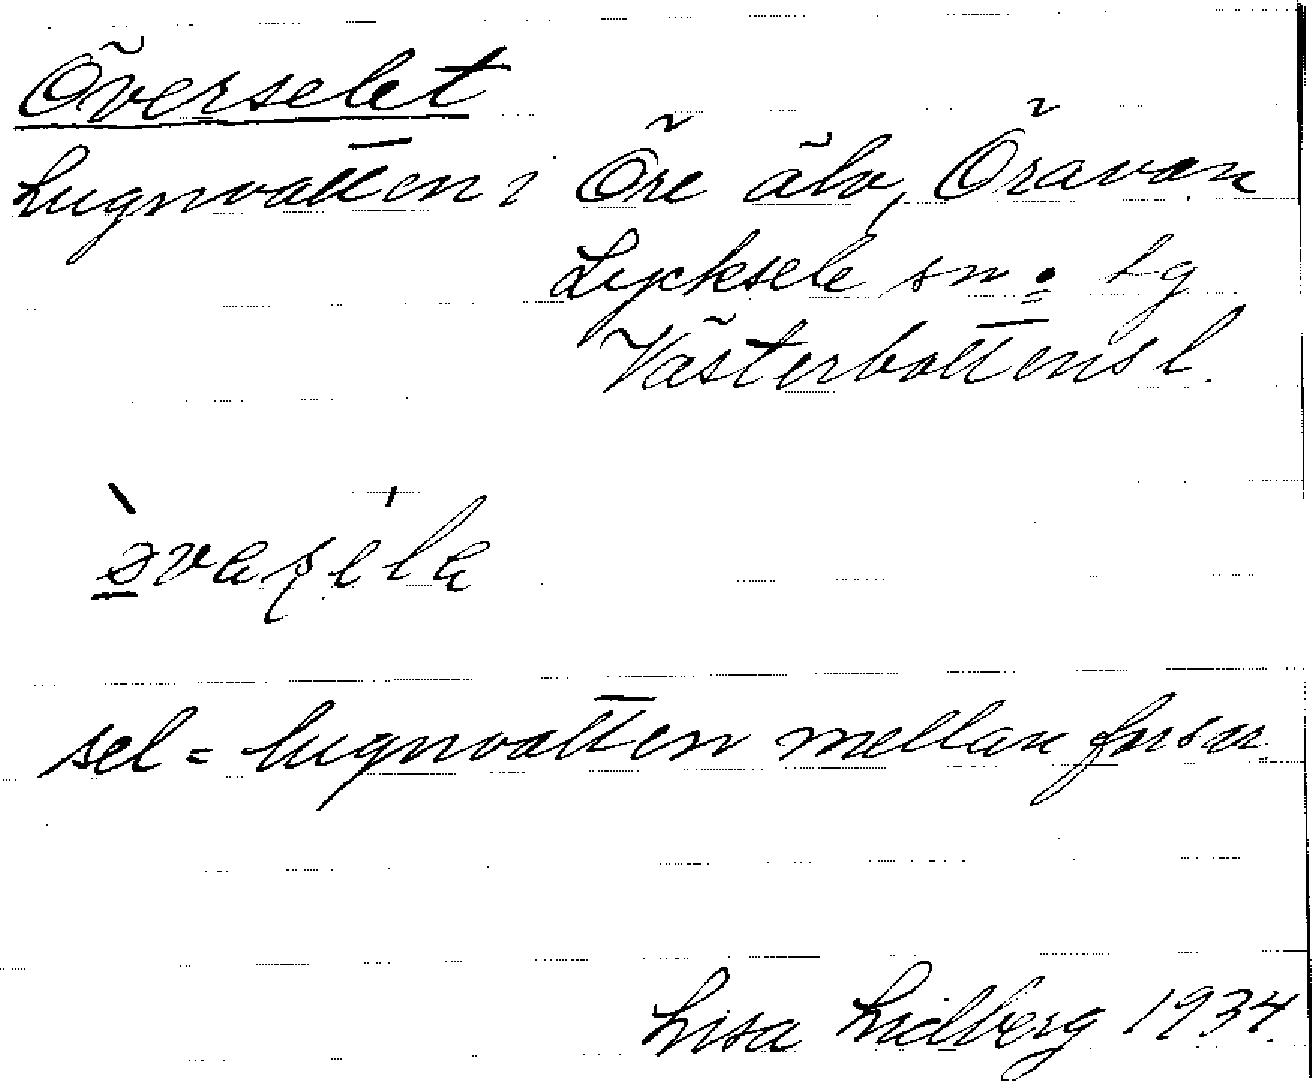 Överselet
Lugnvatten i Öre älv, Öravan
Lycksele sn. Lg
Västerbottens l.
sel = lugnvatten mellan forsar
Lisa Lidberg 1934.